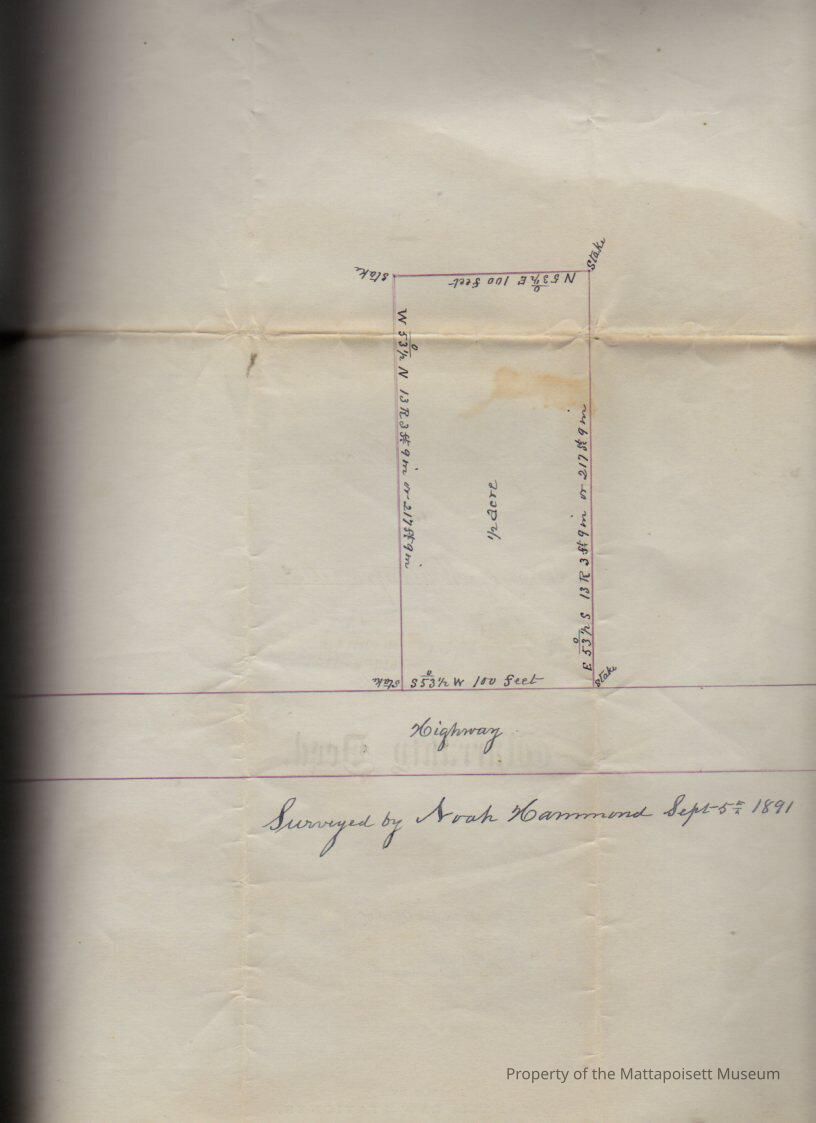 Stake
Stake
N 53 1/2° E 100 feet
W 53 1/2° N 13 R 3 ft 9 in or 217 ft 9 in
1/2 acre
E 53 1/2° S 13 R 3 ft 9 in or 217 ft 9 in
Stake
S 53 1/2° W 100 feet
Stake
Highway
Warranty Deed.
Surveyed by Noah Hammond Sept 5th 1891
Property of the Mattapoisett Museum